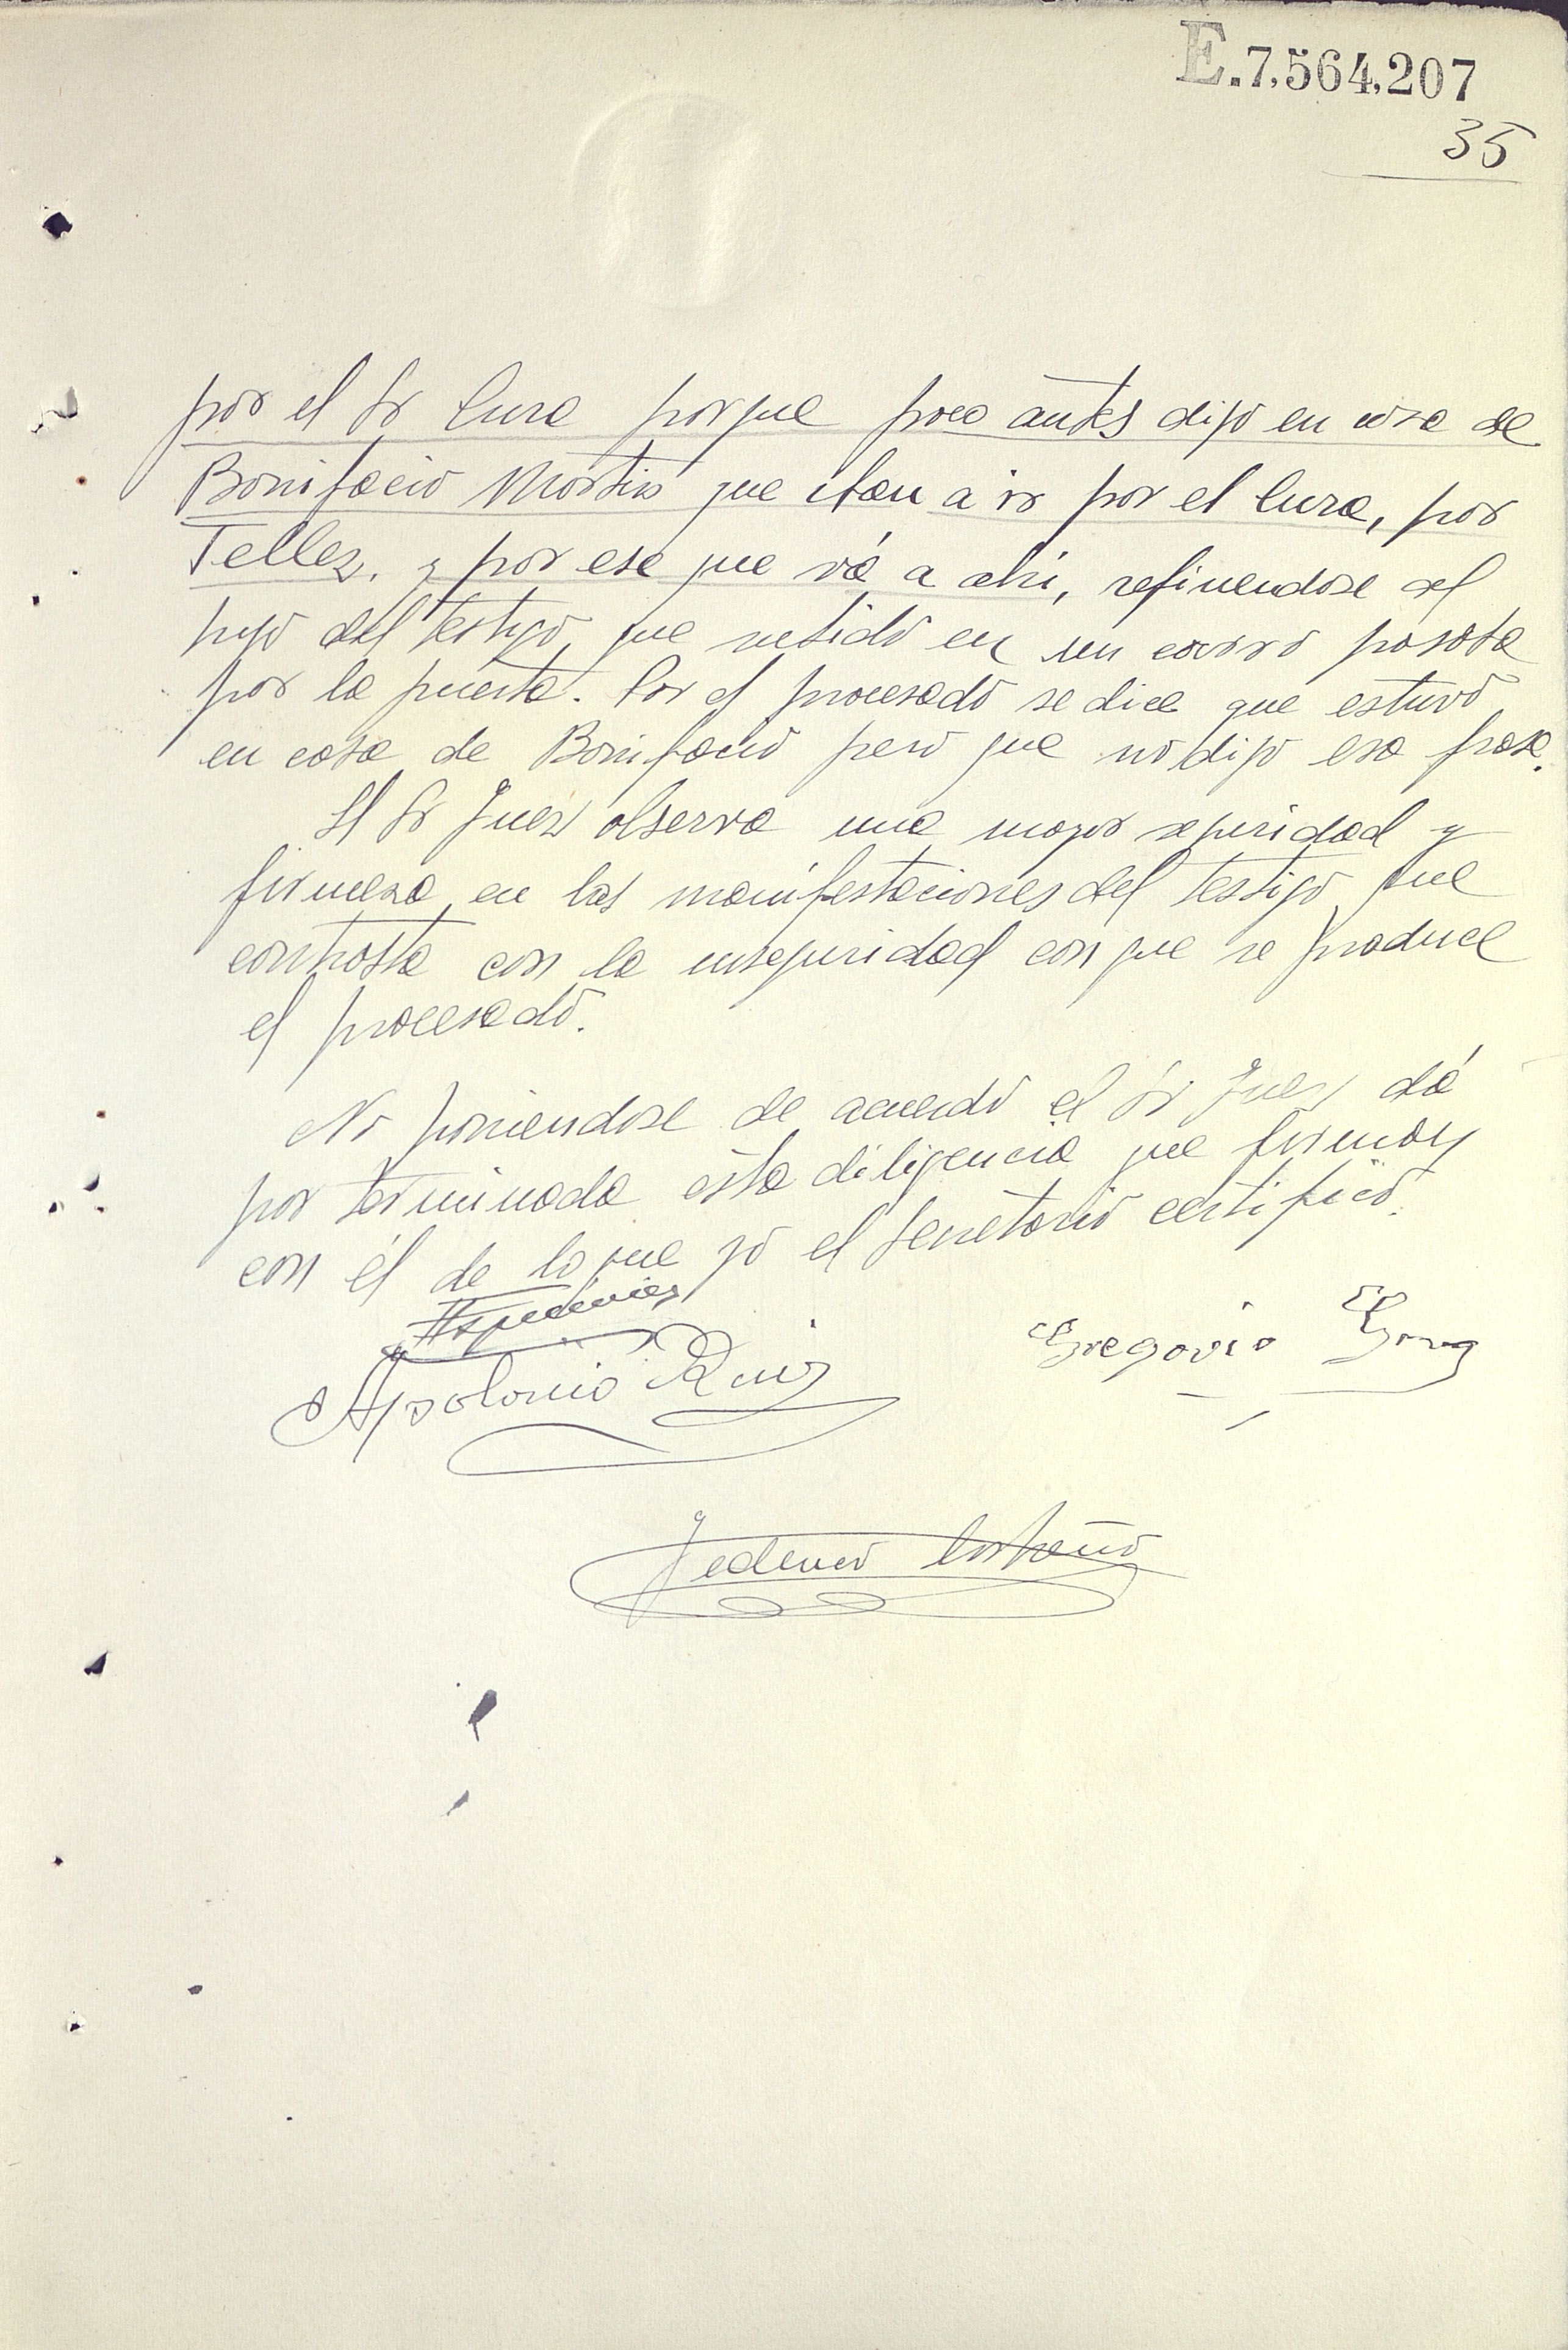 E.7,564,207
35
por el Sr Cura porque poco antes dijo en casa de
Bonifacio Martin que iban a ir por el Cura, por
Tellez, y por ese que vá a ahí, refiriendose al
hijo del testigo, que metido en un carro pasaba
por la puerta. Por el procesado se dice que estuvo
en casa de Bonifacio pero que no dijo esa frase.
El Sr Juez observa una mayor seguridad y
firmeza en las manifestaciones del testigo que
contrasta con la inseguridad con que se produce
el procesado.
No poniendose de acuerdo el Sr Juez dá
por terminada ésta diligencia que firman
con él de lo que yo el Secretario certifico.
Apolonio Ruiz
Gregorio
Federico Castaño